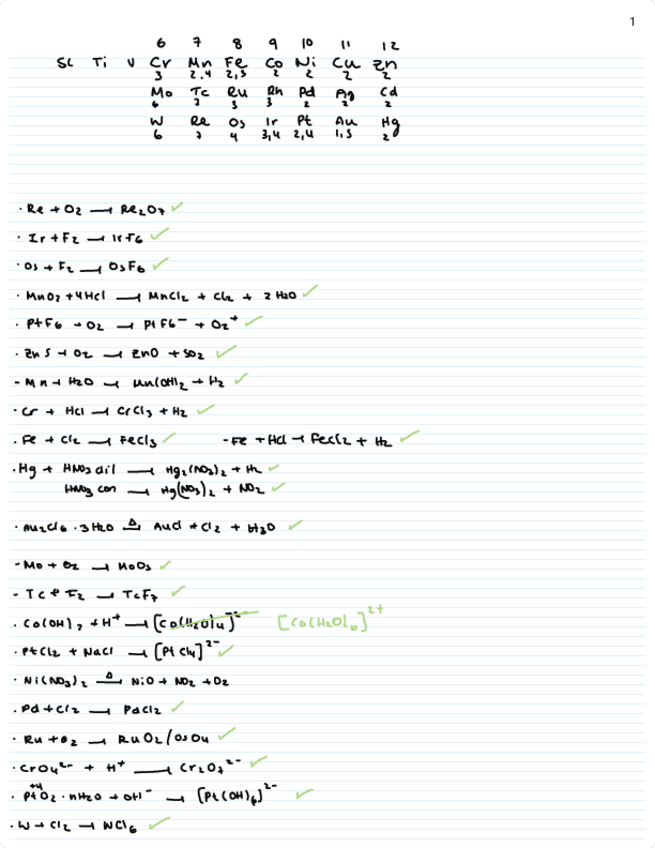 1
6 7 8 9 10 11 12
Sc Ti V Cr Mn Fe Co Ni Cu Zn
3 2,4 2,3 2 2 2 2
Mo Tc Ru Rh Pd Ag Cd
6 7 3 3 2 2 2
W Re Os Ir Pt Au Hg
6 7 4 3,4 2,4 1,3 2
· Re + O2 → Re2O7 ✓
· Ir + F2 → IrF6 ✓
· Os + F2 → OsF6 ✓
· MnO2 + 4HCl → MnCl2 + Cl2 + 2 H2O ✓
· PtF6 + O2 → PtF6⁻ + O2⁺ ✓
· ZnS + O2 → ZnO + SO2 ✓
- Mn + H2O → Mn(OH)2 + H2 ✓
· Cr + HCl → CrCl3 + H2 ✓
· Fe + Cl2 → FeCl3 ✓ - Fe + HCl → FeCl2 + H2 ✓
· Hg + HNO3 dil → Hg2(NO3)2 + H2 ✓
HNO3 con → Hg(NO3)2 + NO2 ✓
· Au2Cl6 · 3H2O Δ→ AuCl + Cl2 + H2O ✓
- Mo + O2 → MoO3 ✓
- Tc + F2 → TcF7 ✓
· Co(OH)2 + H⁺ → [Co(H2O)4]²⁻ [Co(H2O)6]²⁺
· PtCl2 + NaCl → [PtCl4]²⁻ ✓
· Ni(NO3)2 Δ→ NiO + NO2 + O2
· Pd + Cl2 → PdCl2 ✓
· Ru + O2 → RuO2/OsO4 ✓
· CrO4²⁻ + H⁺ → Cr2O7²⁻ ✓
+4
· PtO2 · nH2O + OH⁻ → [Pt(OH)6]²⁻ ✓
· W + Cl2 → WCl6 ✓